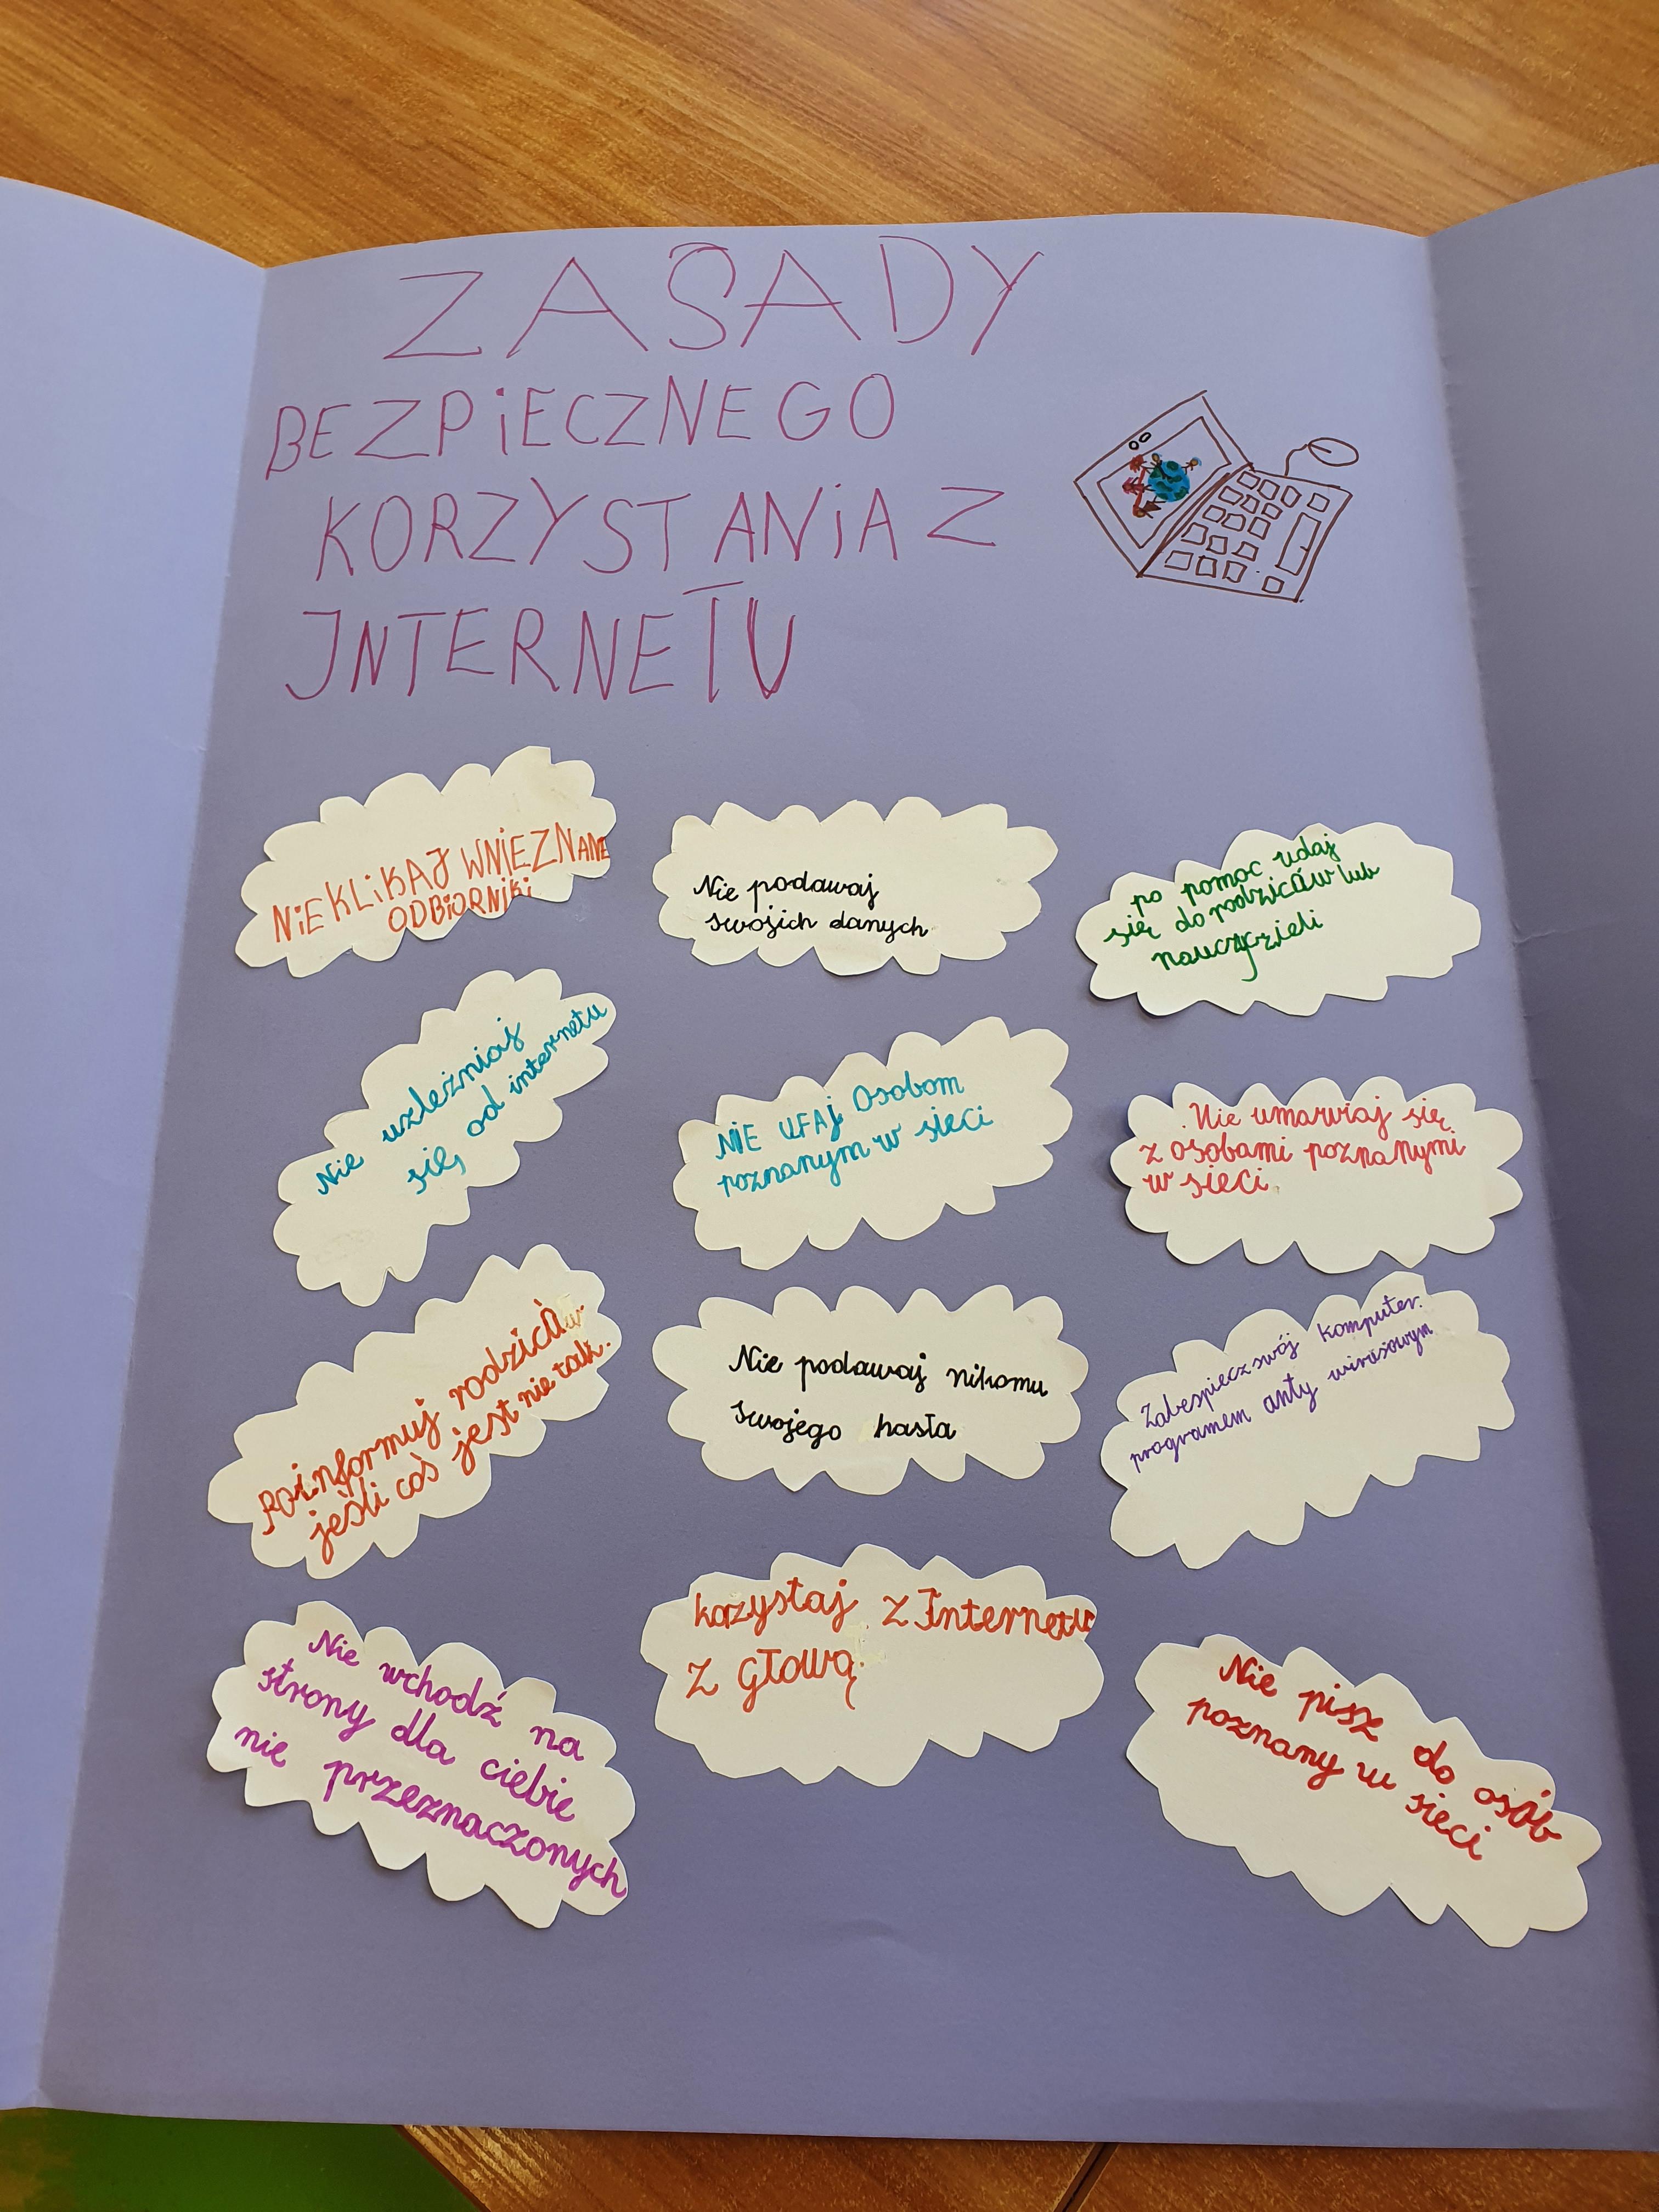 ZASADY
BEZPiECZNEGO
KORZYSTANiA Z
INTERNETU
NiE KLiKAJ W NiEZNANE
ODBiORNiKi
Nie podawaj
swojich danych
po pomoc udaj
się do rodziców lub
nauczycieli
Nie uzleżniaj
się od internetu
NIE UFAJ Osobom
poznanym w sieci
Nie umawiaj się
z osobami poznanymi
w sieci
poinformuj rodziców
jeśli coś jest nie tak.
Nie podawaj nikomu
swojego hasła
Zabespiecz swój komputer
programem anty wirusowym
Nie wchodź na
strony dla ciebie
nie przeznaczonych
korzystaj z Internetu
z głową
Nie pisz do osób
poznany w sieci